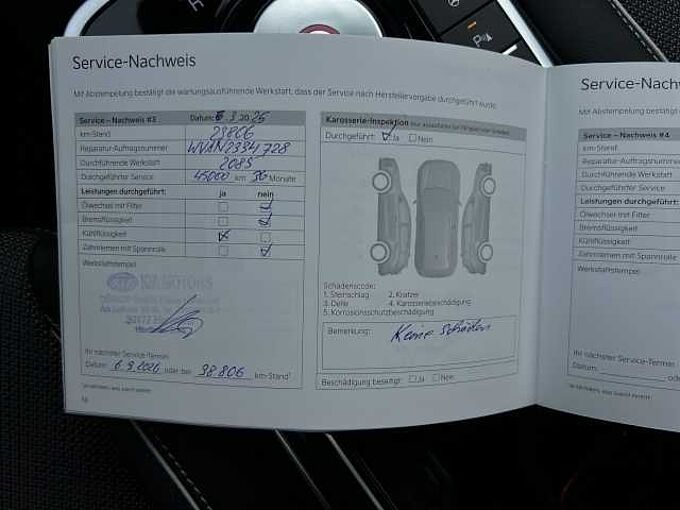 Service-Nachweis
Mit Abstempelung bestätigt die wartungsausführende Werkstatt, dass der Service nach Herstellervorgabe durchgeführt wurde.
Service – Nachweis #3 Datum: 6.3.2025
km-Stand 23806
Reparatur-Auftragsnummer
Durchführende Werkstatt 2085
Durchgeführter Service 45000 km 36 Monate
Leistungen durchgeführt: ja nein
Ölwechsel mit Filter
Bremsflüssigkeit
Kühlflüssigkeit
Zahnriemen mit Spannrolle
Werkstattstempel
KIA MOTORS
Ihr nächster Service-Termin
Datum: 6.3.2026 oder bei 38.806 km-Stand¹
18
Karosserie-Inspektion
Durchgeführt: Ja Nein
Schadenscode:
1. Steinschlag 2. Kratzer
3. Delle 4. Karosseriebeschädigung
5. Korrosionsschutzbeschädigung
Bemerkung: Keine Schäden
Beschädigung beseitigt: Ja Nein
Service-Nachw
Mit Abstempelung bestätigt die
Service – Nachweis #4
km-Stand
Reparatur-Auftragsnummer
Durchführende Werkstatt
Durchgeführter Service
Leistungen durchgeführt:
Ölwechsel mit Filter
Bremsflüssigkeit
Kühlflüssigkeit
Zahnriemen mit Spannrolle
Werkstattstempel
Ihr nächster Service-Termin
Datum: oder